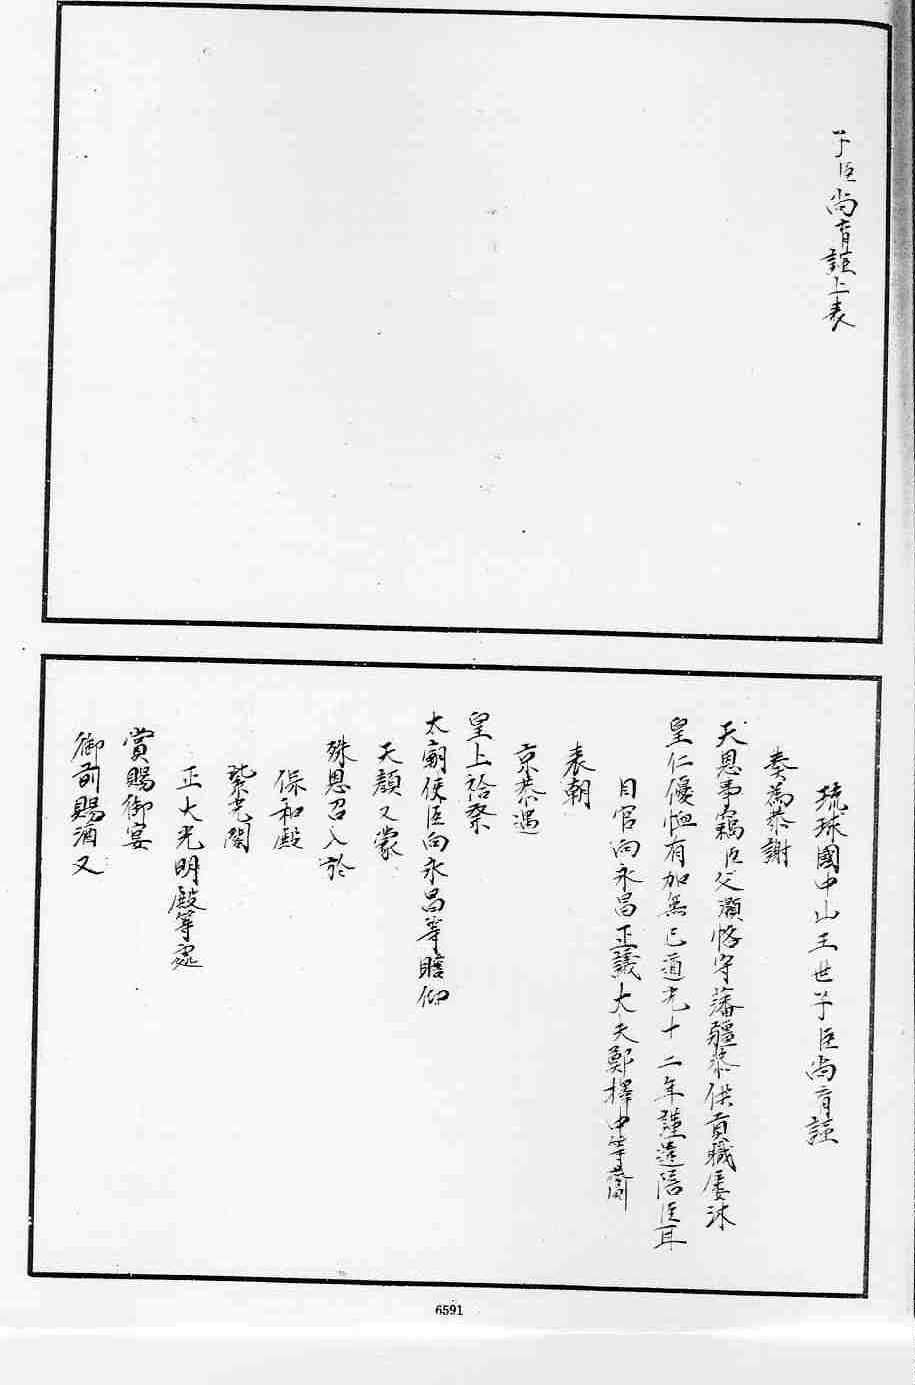 子臣尚育謹上表
琉球國中山王世子臣尚育謹
奏為恭謝
天恩事竊臣父灝恪守藩疆恭供貢職屢沐
皇仁優恤有加無已道光十二年謹遣陪臣耳
目官向永昌正議大夫鄭擇中等齎
表朝
京恭遇
皇上祫祭
太廟使臣向永昌等瞻仰
天顏又蒙
殊恩召入於
保和殿
紫光閣
正大光明殿等處
賞賜御宴
御前賜酒又
6591